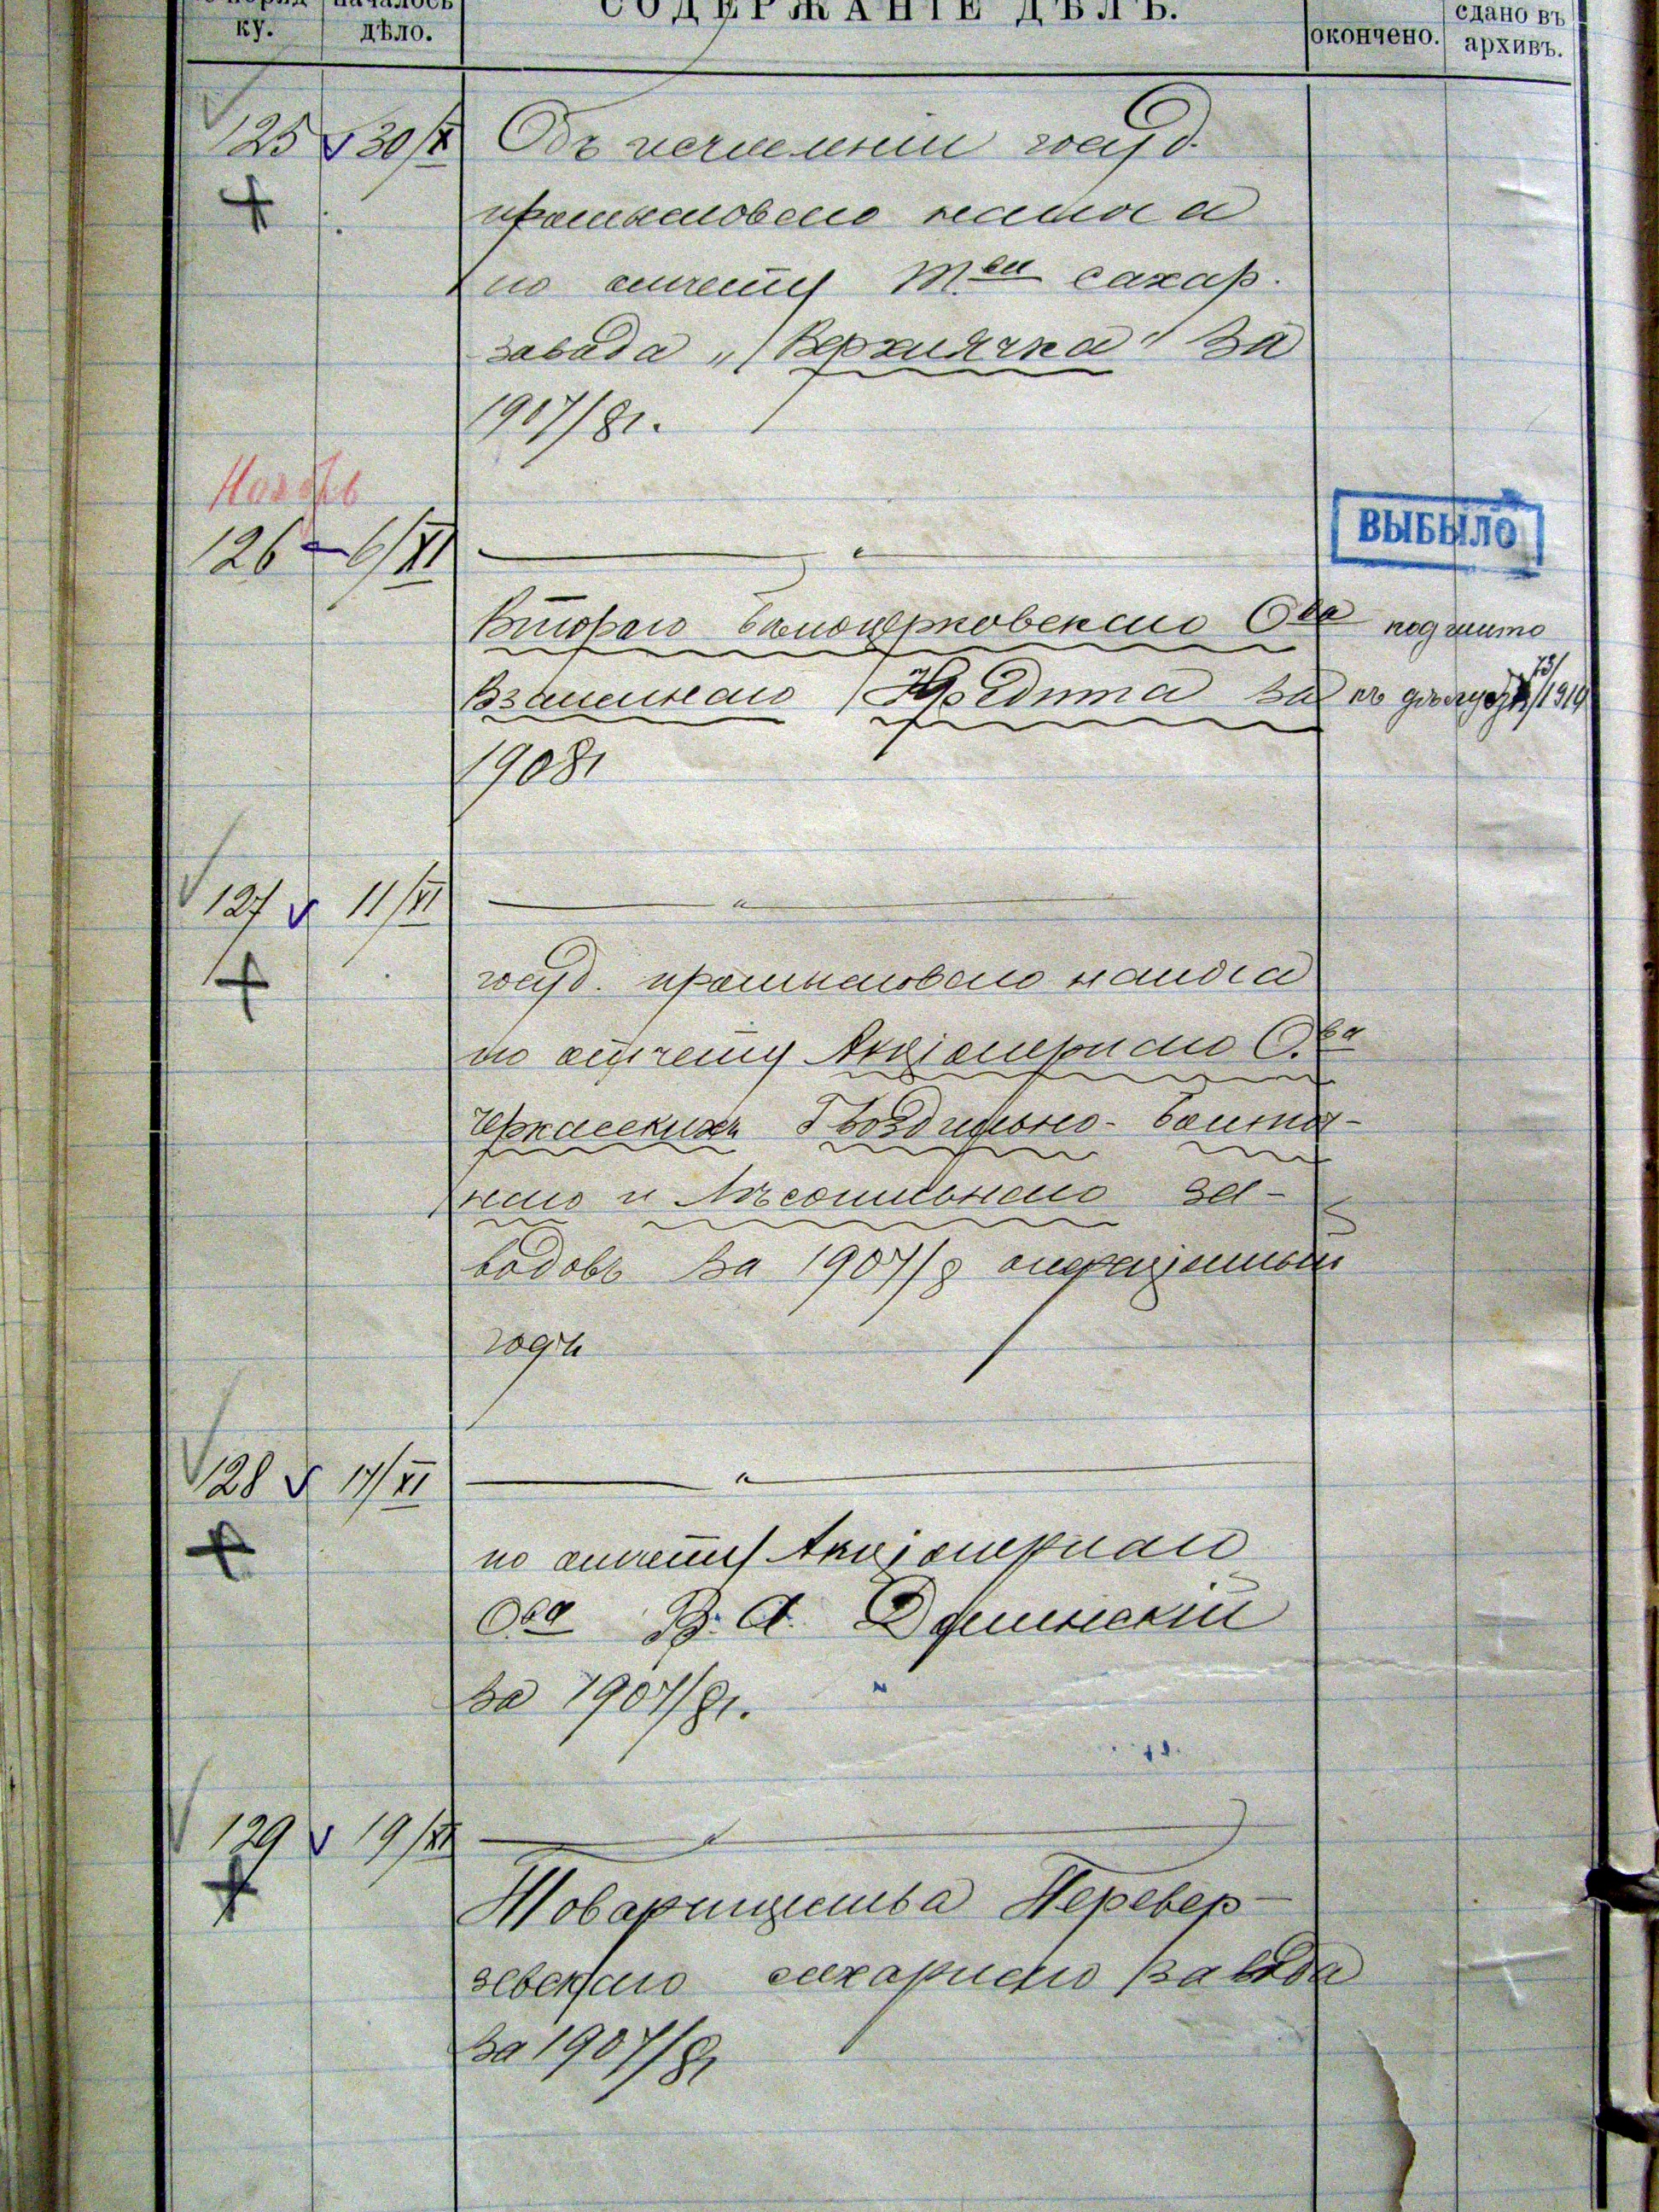 ку.
началось
дѣло.
СОДЕРЖАНІЕ ДѢЛЪ.
окончено.
сдано въ
архивъ.
125 30/X Объ исчисленіи госуд.
промысловаго налога
по отчету Т-ва сахар.
завода „Верхнячка" за
1907/8 г.
Ноябрь
126 6/XI — " —
ВЫБЫЛО
Второго Бѣлоцерковскаго О-ва
Взаимнаго Кредита за
1908 г
подшито
къ дѣлу
127 11/XI — " —
госуд. промысловаго налога
по отчету Акціонернаго О-ва
Черкасскихъ Гвоздильно-Болтов-
наго и Лѣсопильнаго за-
водовъ за 1907/8 операціонный
годъ
128 17/XI — " —
по отчету Акціонернаго
О-ва В. А.
за 1907/8 г.
129 19/XI — " —
Товарищества Перевер-
зевскаго сахарнаго завода
за 1907/8 г